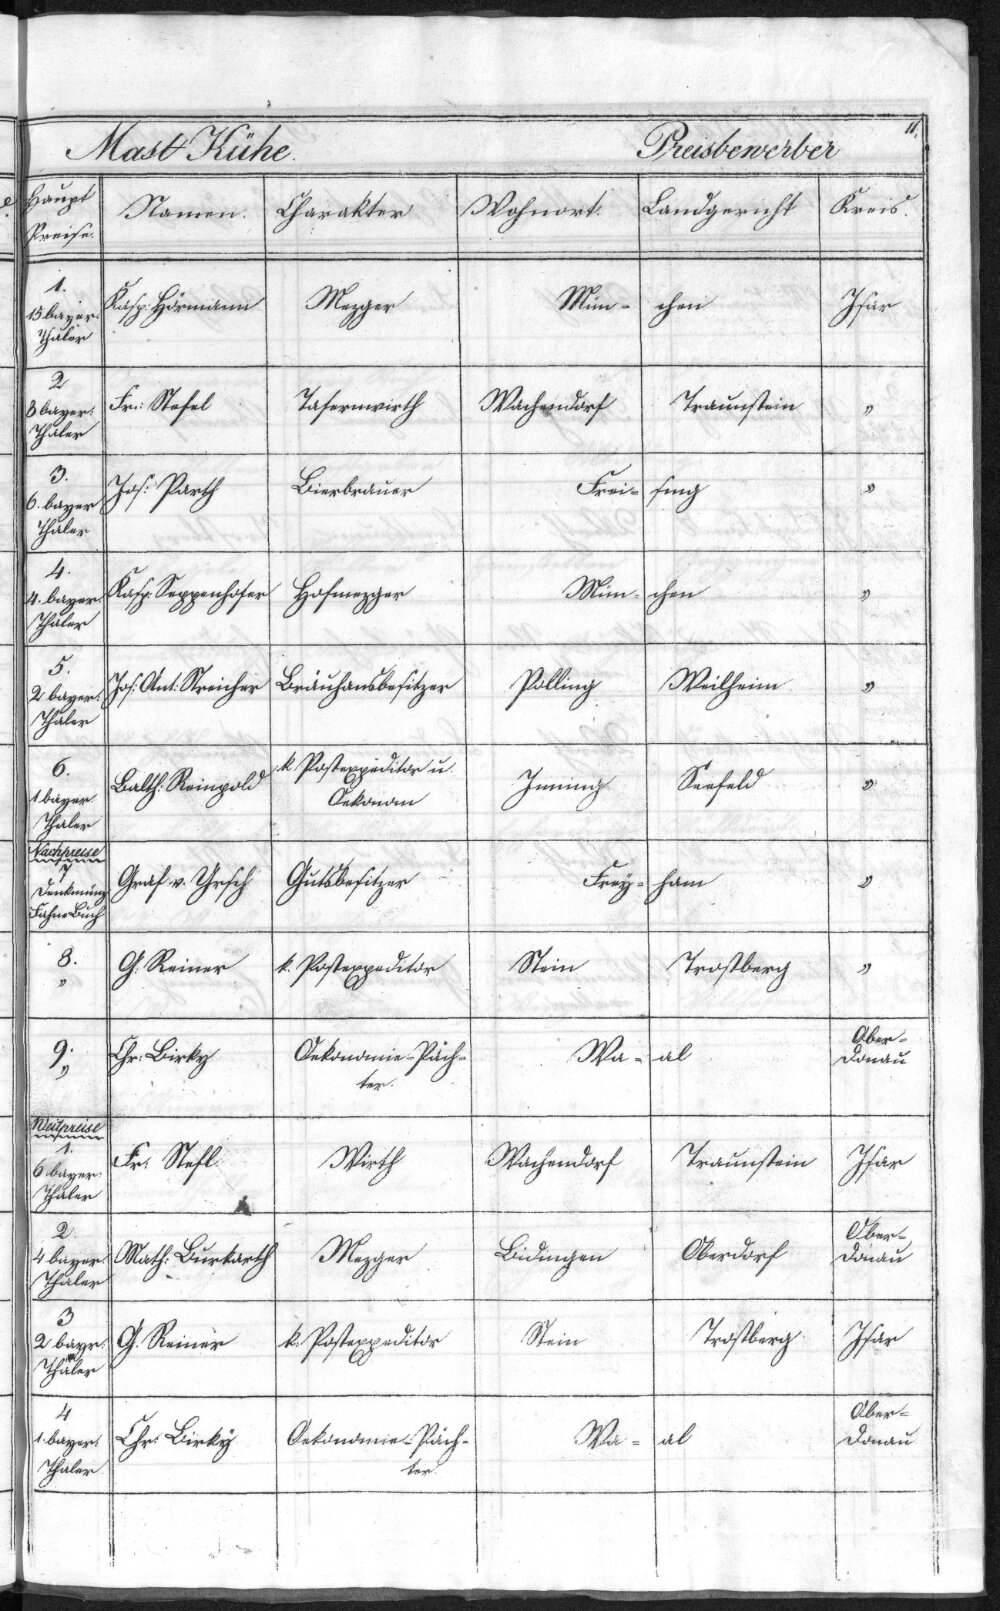 11.
Mast Kühe. Preisbewerber
Haupt Preise. Namen. Charakter Wohnort. Landgericht Kreis.
1. 15 bayer. Thaler Kasp: Hörmann Mezger Mün- chen Isar
2 8 bayer: Thaler Fr: Stefel Tafernwirth Wachendorf Traunstein "
3. 6. bayer Thaler Jos: Parth Bierbrauer Frei- sing "
4. 4. bayer. Thaler Kasp: Seppenhofer Hofmezger Mün- chen "
5. 2 bayer. Thaler Jos: Ant: Streicher Bräuhausbesitzer Polling Weilheim "
6. 1 bayer Thaler Balth: Reinpold k Postexpeditor u. Oekonom Inning Seefeld "
Nachpreise
7 Denkmünz Fahne Buch Graf v. Yrsch Gutsbesitzer Frey- ham "
8. " G. Reiner k. Postexpeditor Stein Trostberg "
9. " Chr: Birky Oekonomie-Päch- ter. Wa- al Ober- Donau
Weitpreise
1. 6 bayer. Thaler Fr: Stefl. Wirth Wachendorf Traunstein Isar
2. 4 bayer. Thaler Math: Burkarth Mezger Bidingen Oberdorf Ober- Donau
3 2 bayr. Thaler G. Reiner k. Postexpeditor Stein Trostberg Isar
4 1. bayer. Thaler Chr: Birky Oekonomie-Päch- ter. Wa- al Ober- Donau